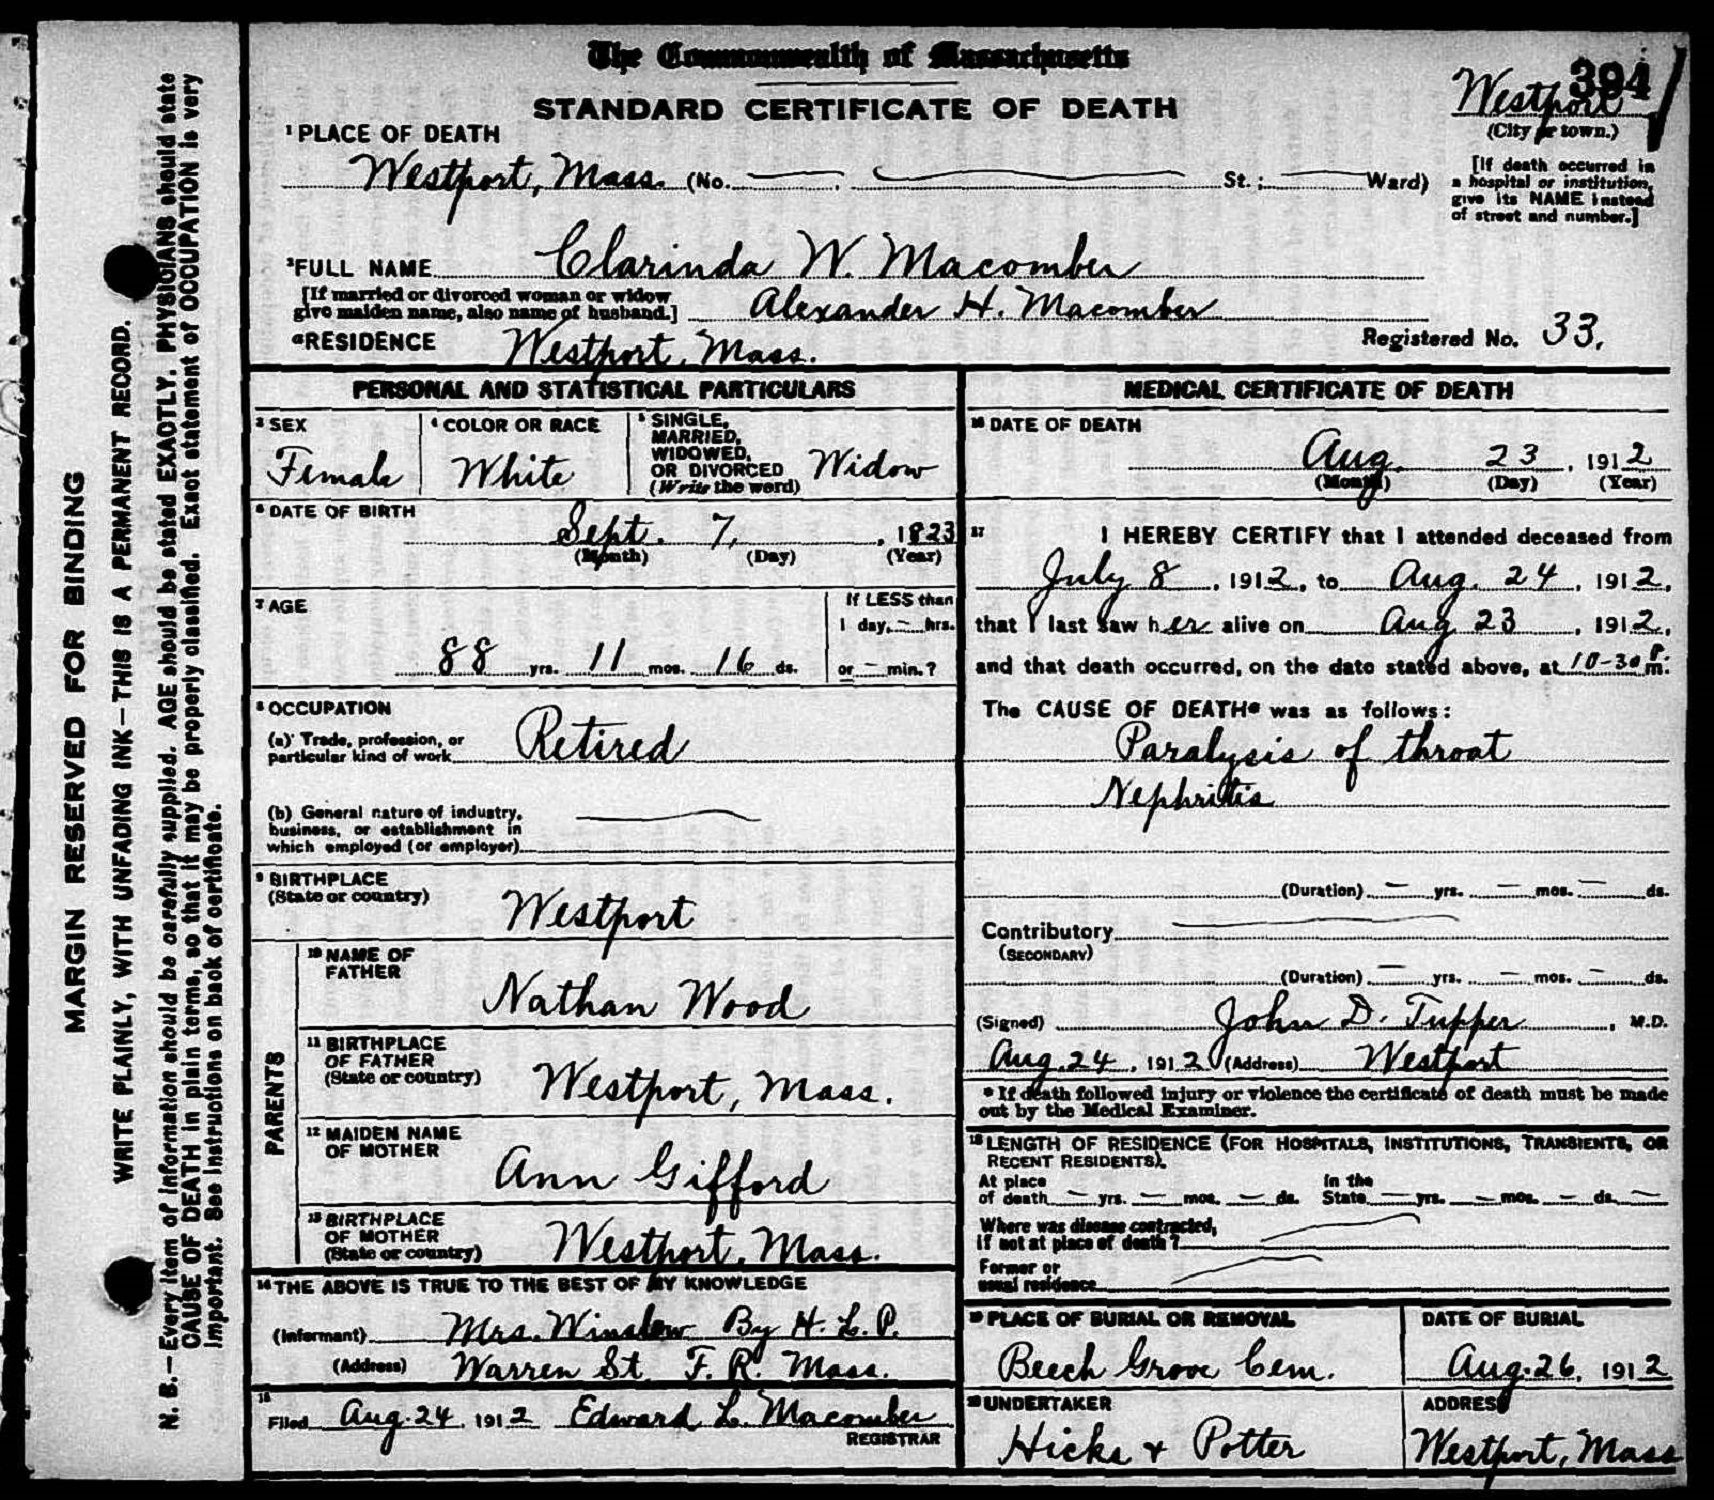 The Commonwealth of Massachusetts
394
STANDARD CERTIFICATE OF DEATH
Westport
(City or town.)
1 PLACE OF DEATH
Westport, Mass. (No. St.; Ward)
[If death occurred in
a hospital or institution,
give its NAME instead
of street and number.]
2 FULL NAME Clarinda W. Macomber
[If married or divorced woman or widow
give maiden name, also name of husband.] Alexander H. Macomber
RESIDENCE Westport, Mass.
Registered No. 33.
PERSONAL AND STATISTICAL PARTICULARS
3 SEX
Female
4 COLOR OR RACE
White
5 SINGLE,
MARRIED,
WIDOWED,
OR DIVORCED
(Write the word)
Widow
6 DATE OF BIRTH
Sept. 7, , 1823
(Month) (Day) (Year)
7 AGE
88 yrs. 11 mos. 16 ds.
If LESS than
1 day, – hrs.
or – min.?
8 OCCUPATION
(a) Trade, profession, or
particular kind of work Retired
(b) General nature of industry,
business, or establishment in
which employed (or employer)
9 BIRTHPLACE
(State or country)
Westport
PARENTS
10 NAME OF
FATHER
Nathan Wood
11 BIRTHPLACE
OF FATHER
(State or country) Westport, Mass.
12 MAIDEN NAME
OF MOTHER
Ann Gifford
13 BIRTHPLACE
OF MOTHER
(State or country) Westport, Mass.
14 THE ABOVE IS TRUE TO THE BEST OF MY KNOWLEDGE
(Informant) Mrs. Winslow By H. L. P.
(Address) Warren St. F. R. Mass.
15
Filed Aug. 24, 1912 Edward L. Macomber
REGISTRAR
MEDICAL CERTIFICATE OF DEATH
16 DATE OF DEATH
Aug. 23, 1912
(Month) (Day) (Year)
17 I HEREBY CERTIFY that I attended deceased from
July 8, 1912, to Aug. 24, 1912,
that I last saw her alive on Aug 23, 1912,
and that death occurred, on the date stated above, at 10-30 P. m.
The CAUSE OF DEATH* was as follows:
Paralysis of throat
Nephritis
(Duration) – yrs. – mos. – ds.
Contributory
(SECONDARY)
(Duration) – yrs. – mos. – ds.
(Signed) John D. Tupper, M.D.
Aug. 24, 1912 (Address) Westport
* If death followed injury or violence the certificate of death must be made
out by the Medical Examiner.
18 LENGTH OF RESIDENCE (FOR HOSPITALS, INSTITUTIONS, TRANSIENTS, OR
RECENT RESIDENTS).
At place
of death – yrs. – mos. – ds.
In the
State – yrs. – mos. – ds. –
Where was disease contracted,
if not at place of death?
Former or
usual residence
19 PLACE OF BURIAL OR REMOVAL
Beech Grove Cem.
DATE OF BURIAL
Aug. 26, 1912
20 UNDERTAKER
Hicks & Potter
ADDRESS
Westport, Mass
MARGIN RESERVED FOR BINDING
WRITE PLAINLY, WITH UNFADING INK—THIS IS A PERMANENT RECORD.
N. B.—Every item of information should be carefully supplied. AGE should be stated EXACTLY. PHYSICIANS should state
CAUSE OF DEATH in plain terms, so that it may be properly classified. Exact statement of OCCUPATION is very
important. See instructions on back of certificate.